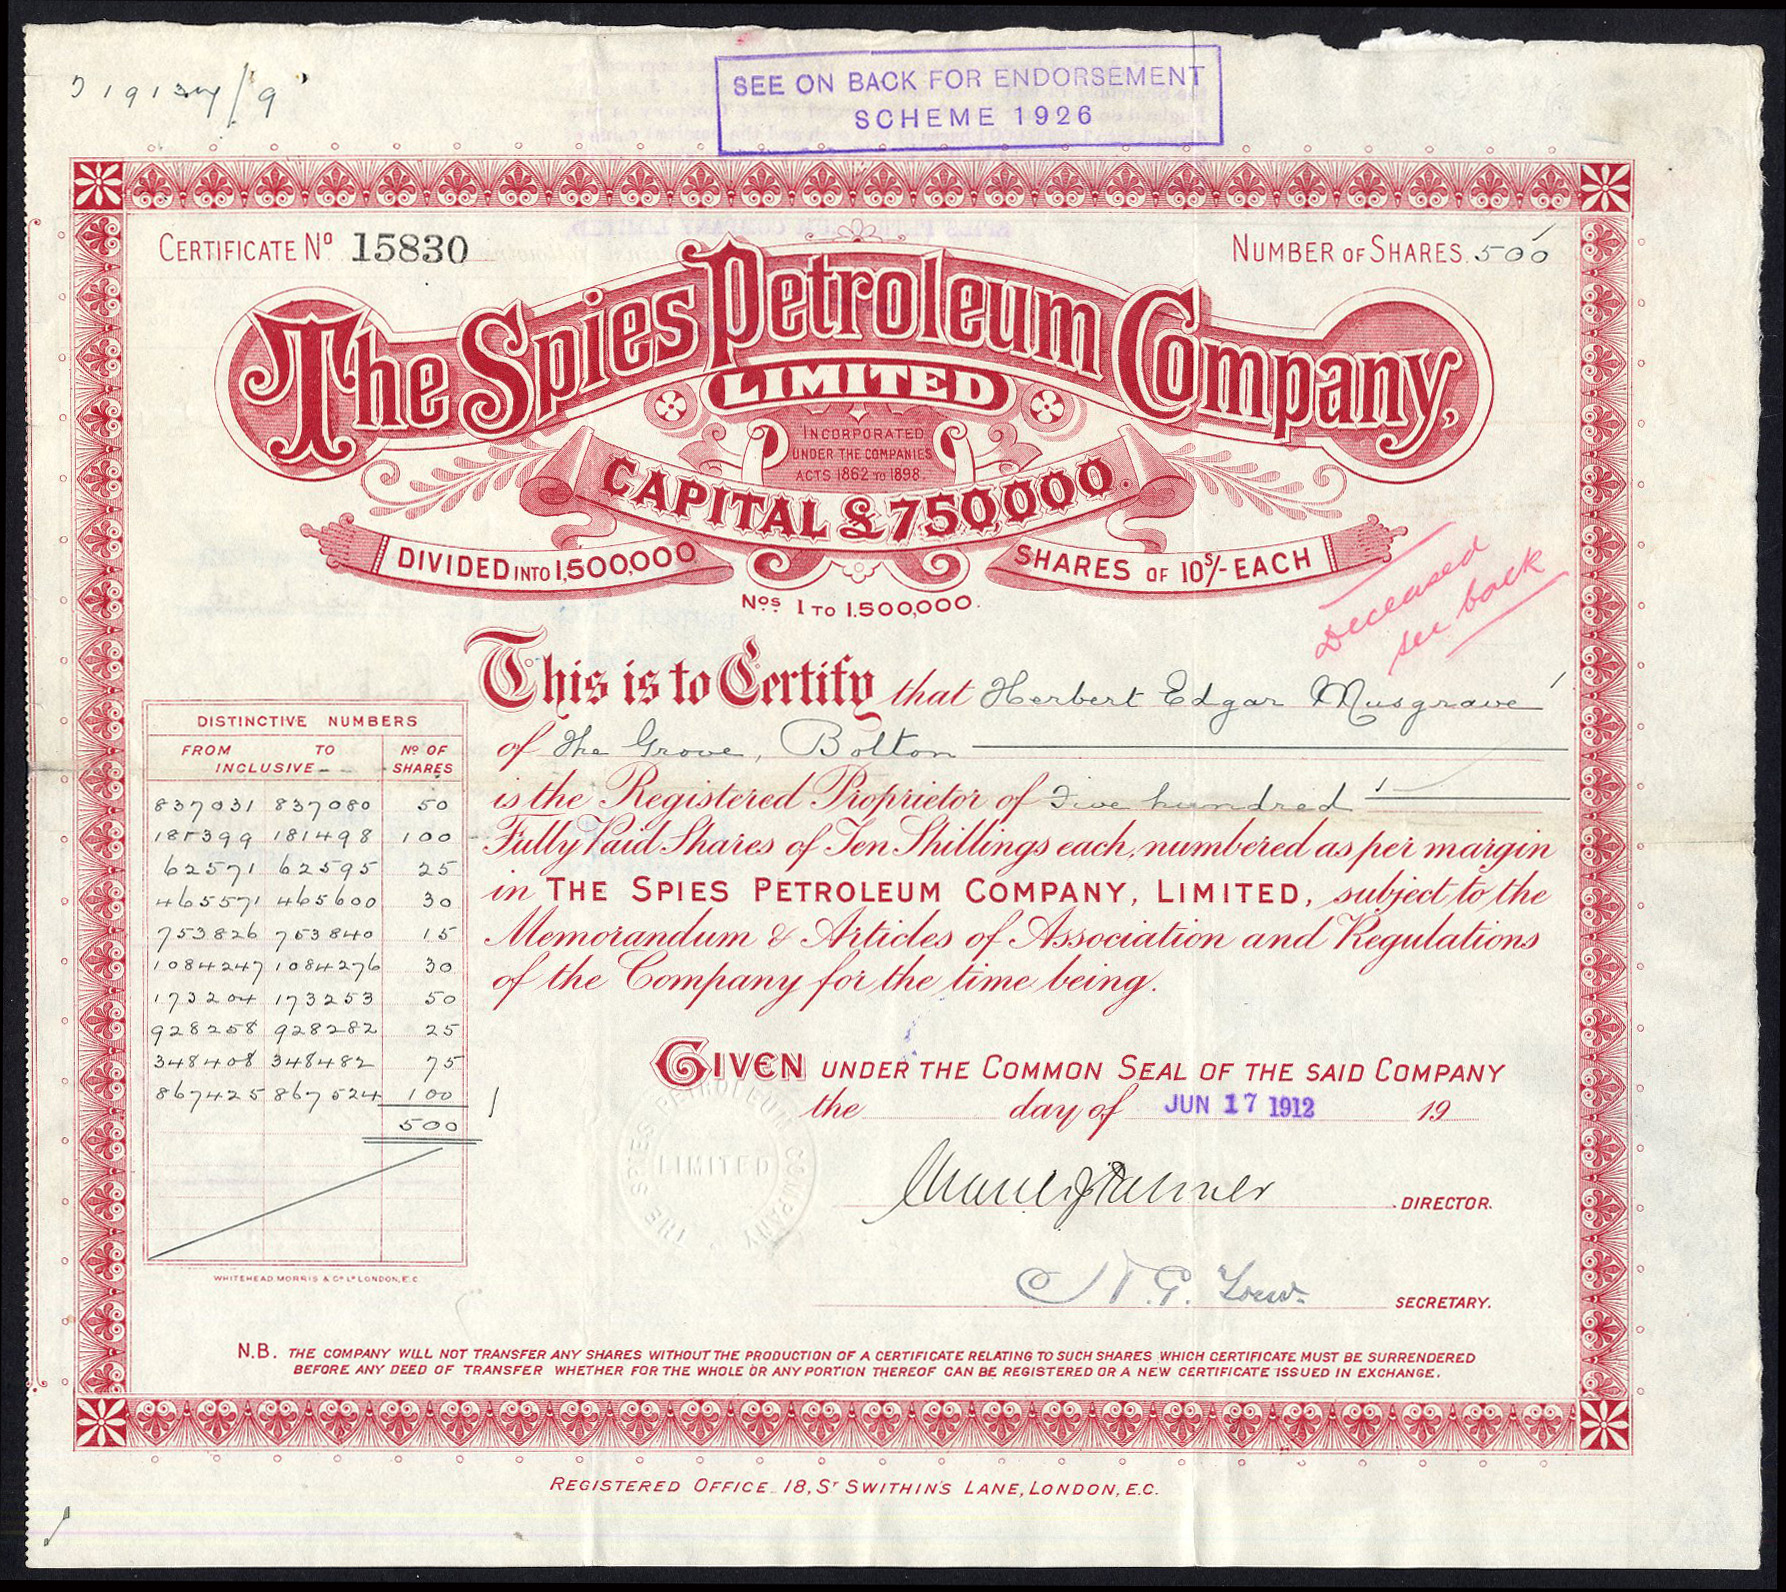 SEE ON BACK FOR ENDORSEMENT
SCHEME 1926
CERTIFICATE Nº 15830
NUMBER OF SHARES. 500
The Spies Petroleum Company,
LIMITED
INCORPORATED
UNDER THE COMPANIES
ACTS 1862 TO 1898.
CAPITAL £750,000.
DIVIDED INTO 1,500,000 SHARES OF 10S/- EACH
Nos 1 TO 1.500,000.
Deceased
see back
This is to Certify that Herbert Edgar Musgrave
of The Grove, Bolton
is the Registered Proprietor of Five hundred
Fully Paid Shares of Ten Shillings each, numbered as per margin
in THE SPIES PETROLEUM COMPANY, LIMITED, subject to the
Memorandum & Articles of Association and Regulations
of the Company for the time being.
DISTINCTIVE NUMBERS
FROM TO Nº OF
INCLUSIVE SHARES
837031 837080 50
181399 181498 100
62571 62595 25
465571 465600 30
753826 753840 15
1084247 1084276 30
173204 173253 50
928258 928282 25
348408 348482 75
867425 867524 100
500
WHITEHEAD MORRIS & Co Ld LONDON, E.C.
GIVEN UNDER THE COMMON SEAL OF THE SAID COMPANY
the day of JUN 17 1912 19
THE SPIES PETROLEUM COMPANY
LIMITED
DIRECTOR.
SECRETARY.
N.B. THE COMPANY WILL NOT TRANSFER ANY SHARES WITHOUT THE PRODUCTION OF A CERTIFICATE RELATING TO SUCH SHARES WHICH CERTIFICATE MUST BE SURRENDERED
BEFORE ANY DEED OF TRANSFER WHETHER FOR THE WHOLE OR ANY PORTION THEREOF CAN BE REGISTERED OR A NEW CERTIFICATE ISSUED IN EXCHANGE.
REGISTERED OFFICE. 18, ST SWITHIN'S LANE, LONDON, E.C.